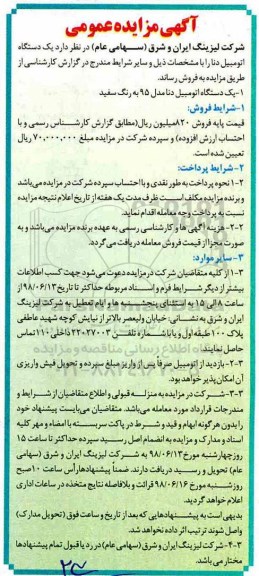 آگهی مزایده عمومی
شرکت لیزینگ ایران و شرق (سهامی عام) در نظر دارد یک دستگاه
اتومبیل دنا را با مشخصات ذیل و سایر شرایط مندرج در گزارش کارشناسی از
طریق مزایده به فروش رساند.
۱-یک دستگاه اتومبیل دنا مدل ۹۵ به رنگ سفید
۱-شرایط فروش:
قیمت پایه فروش ۸۲۰ میلیون ریال (مطابق گزارش کارشناس رسمی و با
احتساب ارزش افزوده) و سپرده شرکت در مزایده مبلغ ۷۰,۰۰۰,۰۰۰ ریال
تعیین شده است.
۲-شرایط پرداخت:
۲-۱ نحوه پرداخت به طور نقدی و با احتساب سپرده شرکت در مزایده می‌باشد
و برنده مزایده مکلف است ظرف مدت یک هفته از تاریخ اعلام نتیجه مزایده
نسبت به پرداخت وجه معامله اقدام نماید.
۲-۲- هزینه آگهی ها و کارشناسی رسمی به عهده برنده مزایده می‌باشد و به
صورت مجزا از قیمت فروش معامله دریافت می گردد.
۳-سایر موارد:
۳-۱ از کلیه متقاضیان شرکت در مزایده دعوت می‌شود جهت کسب اطلاعات
بیشتر از دیگر شرایط فرم و اسناد مربوطه حداکثر تا تاریخ ۹۸/۰۶/۱۳ از
ساعت ۸ الی ۱۵ به استثنای پنجشنبه ها و ایام تعطیل به شرکت لیزینگ
ایران و شرق به نشانی: خیابان ولیعصر بالاتر از نیایش کوچه شهید عاطفی
پلاک ۱۰۰ طبقه اول و یا با شماره تلفن ۲۲۰۲۷۰۰۳ داخلی ۱۱۰ تماس
حاصل نمایند.
۳-۲- بازدید از اتومبیل صرفاً پس از واریز مبلغ سپرده و تحویل فیش واریزی
آن امکان پذیر خواهد بود.
۳-۳- شرکت در مزایده به منزله قبولی و اطلاع متقاضیان از شرایط و
مندرجات قرارداد مورد معامله می‌باشد. متقاضیان می‌بایست پیشنهاد خود
را بدون هرگونه ابهام و قید و شرط در پاکت سربسته با امضاء و مهر کلیه
اسناد و مدارک و مزایده به انضمام اصل رسید سپرده حداکثر تا ساعت ۱۵
روز چهارشنبه مورخ ۹۸/۰۶/۱۳ به شرکت لیزینگ ایران و شرق (سهامی
عام) تحویل و رسید دریافت دارند. ضمناً پیشنهادها رأس ساعت ۱۰ صبح
روز شنبه مورخ ۹۸/۰۶/۱۶ قرائت و بلافاصله نتایج متخذه در ساعات اداری
اعلام خواهد گردید.
بدیهی است به پیشنهادهایی که بعد از تاریخ و ساعت فوق (تحویل مدارک)
واصل شوند ترتیب اثر داده نخواهد شد.
۳-۴- شرکت لیزینگ ایران و شرق (سهامی عام) در رد یا قبول تمام پیشنهادها
مختار می‌باشد.